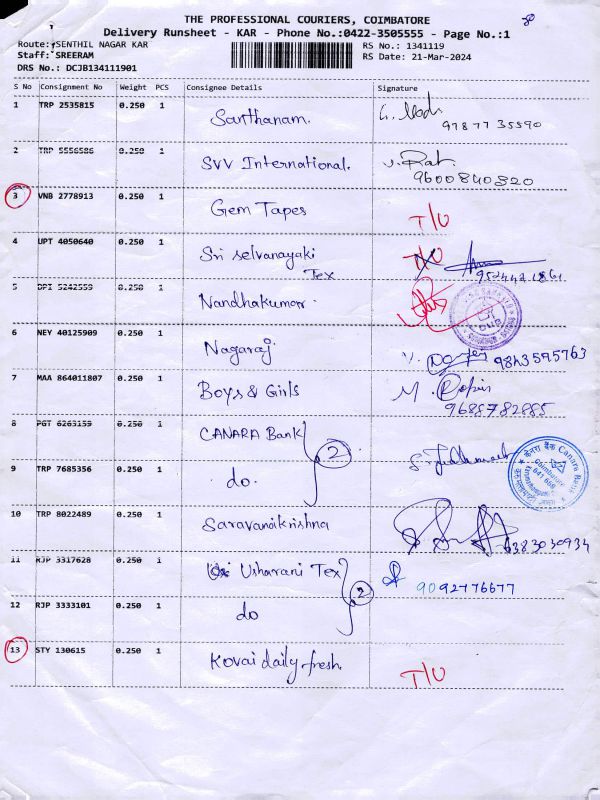 THE PROFESSIONAL COURIERS, COIMBATORE
Delivery Runsheet - KAR - Phone No.:0422-3505555 - Page No.:1
Route: SENTHIL NAGAR KAR
RS No.: 1341119
Staff: SREERAM
RS Date: 21-Mar-2024
DRS No.: DCJB134111901
S No Consignment No Weight PCS Consignee Details Signature
1 TRP 2535815 0.250 1 Santhanam.
9787735590
2 TRP 5556586 0.250 1 SVV International.
9600840320
3 VNB 2778913 0.250 1 Gem Tapes T/U
4 UPT 4050640 0.250 1 Sri selvanayaki Tex T/U
5 DPI 5242559 0.250 1 Nandhakumar.
6 NEY 40125909 0.250 1 Nagaraj 9843595763
7 MAA 864011807 0.250 1 Boys & Girls M.
9685782885
8 PGT 6263159 0.250 1 CANARA Bank 2
9 TRP 7685356 0.250 1 do.
Canara Bank
Coimbatore
10 TRP 8022489 0.250 1 Saravanakrishna 6383030934
11 RJP 3317628 0.250 1 Usharani Tex 2 9092776677
12 RJP 3333101 0.250 1 do
13 STY 130615 0.250 1 Kovai daily fresh. T/U